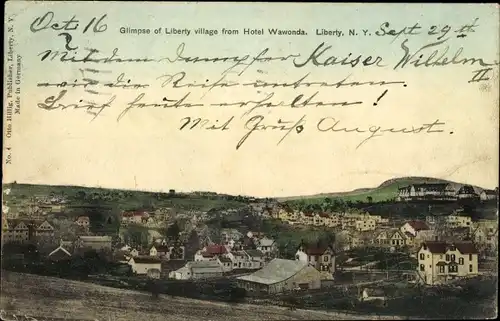 Oct 16
Glimpse of Liberty village from Hotel Wawonda. Liberty, N. Y. Sept 29th
Mit dem Dampfer Kaiser Wilhelm II
wird die Reise antreten
Brief heute erhalten !
Mit Gruß August.
No. 4 Otto Hillig, Publisher, Liberty, N. Y.
Made in Germany